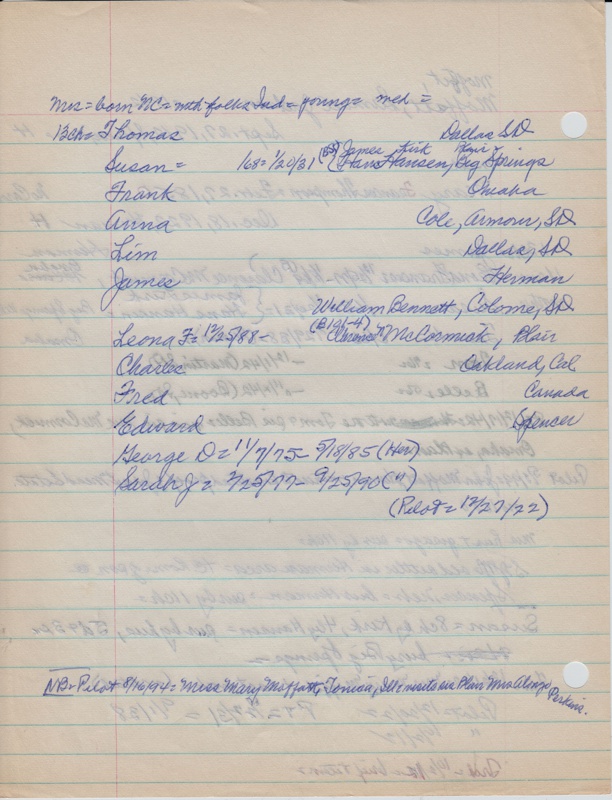 Mrs = born NC = with folks Ind = young = med =
13ch = Thomas Dallas SD
Susan = 168 = 1/20/31 (B5) { James Kirk, Plair +
Hans Hansen, Big Springs
Frank Omaha
Anna Cole, Armour, SD
Lim Dallas, SD
James Herman
William Bennett, Colome, SD
(B191-4)
Leona F = 12/25/88 - Clarence McCormick, Plair
Charles Oakland, Cal
Fred Canada
Edward Spencer
George D = 11/7/75 - 5/18/85 (Her)
Sarah J = 2/25/77 - 9/25/90 (")
(Pilot = 12/27/22)
NB = Pilot 8/16/94 = Miss Mary Moffatt, Toulon, Ill = visits sis Plair Mrs Alonzo Perkins.